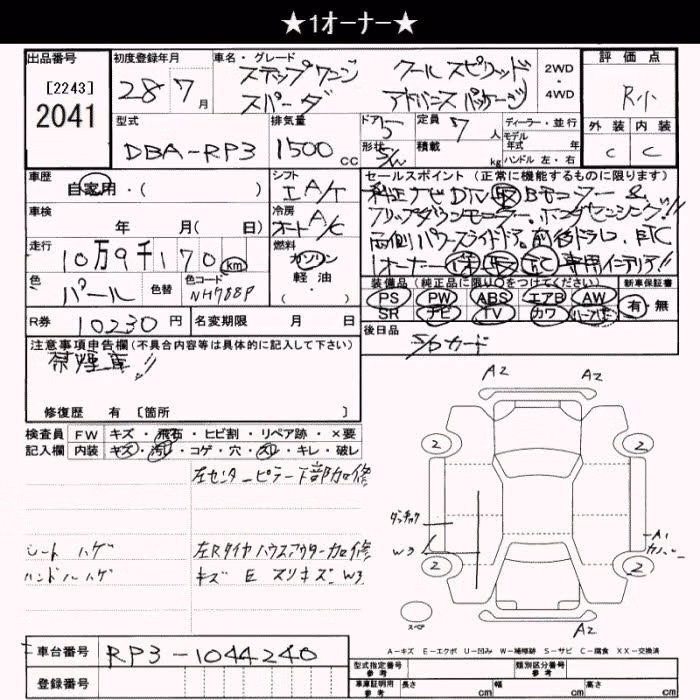 ★1オーナー★
出品番号
[2243]
2041
初度登録年月
28 7月
車名・グレード
ステップワゴン
スパーダ
クールスピリッド
アドバンスパッケージ
2WD
・
4WD
評価点
R小
外装 内装
C C
型式
DBA-RP3
排気量
1500cc
ドア 5
形状 S/W
定員 7人
積載 kg
ディーラー・並行
モデル
年式 年
ハンドル 左・右
車歴
自家用・( )
シフト
I A/T
セールスポイント (正常に機能するものに限ります)
純正ナビDTV Bモニター &
フリップダウンモニター、ホンダセンシング!!
両側パワースライドドア、前後ドラレコ、ETC
1オーナー 専用インテリア!!
車検
年 月( 日)
冷房
オートA/C
走行
10万9千170km
燃料
ガソリン
軽油
・( )
色
パール
色替
色コード
NH788P
装備品(純正品に限り○をつけてください)
PS PW ABS エアB AW
SR ナビ TV カワ
新車保証書
有・無
R券
10230円
名変期限 月 日
後日品
S/Dカード
注意事項申告欄(不具合内容等は具体的に記入して下さい)
禁煙車!!
修復歴 有 [箇所 ]
検査員 FW キズ・飛石・ヒビ割・リペア跡・×要
記入欄 内装 キズ・汚れ・コゲ・穴・スレ・キレ・破レ
左センターピラー下部加修
シートハゲ
ハンドルハゲ
左Rタイヤハウスアウター加修
キズ E スリキズ W3
A2 A2
2 2
W3
A1
2 2
スペア
A2
A-キズ E-エクボ U-凹み W-補修跡 S-サビ C-腐食 XX-交換済
車台番号
RP3-1044240
登録番号
型式指定番号
参考
類別区分番号
参考
車庫証明用
参考
長さ cm 幅 cm 高さ cm